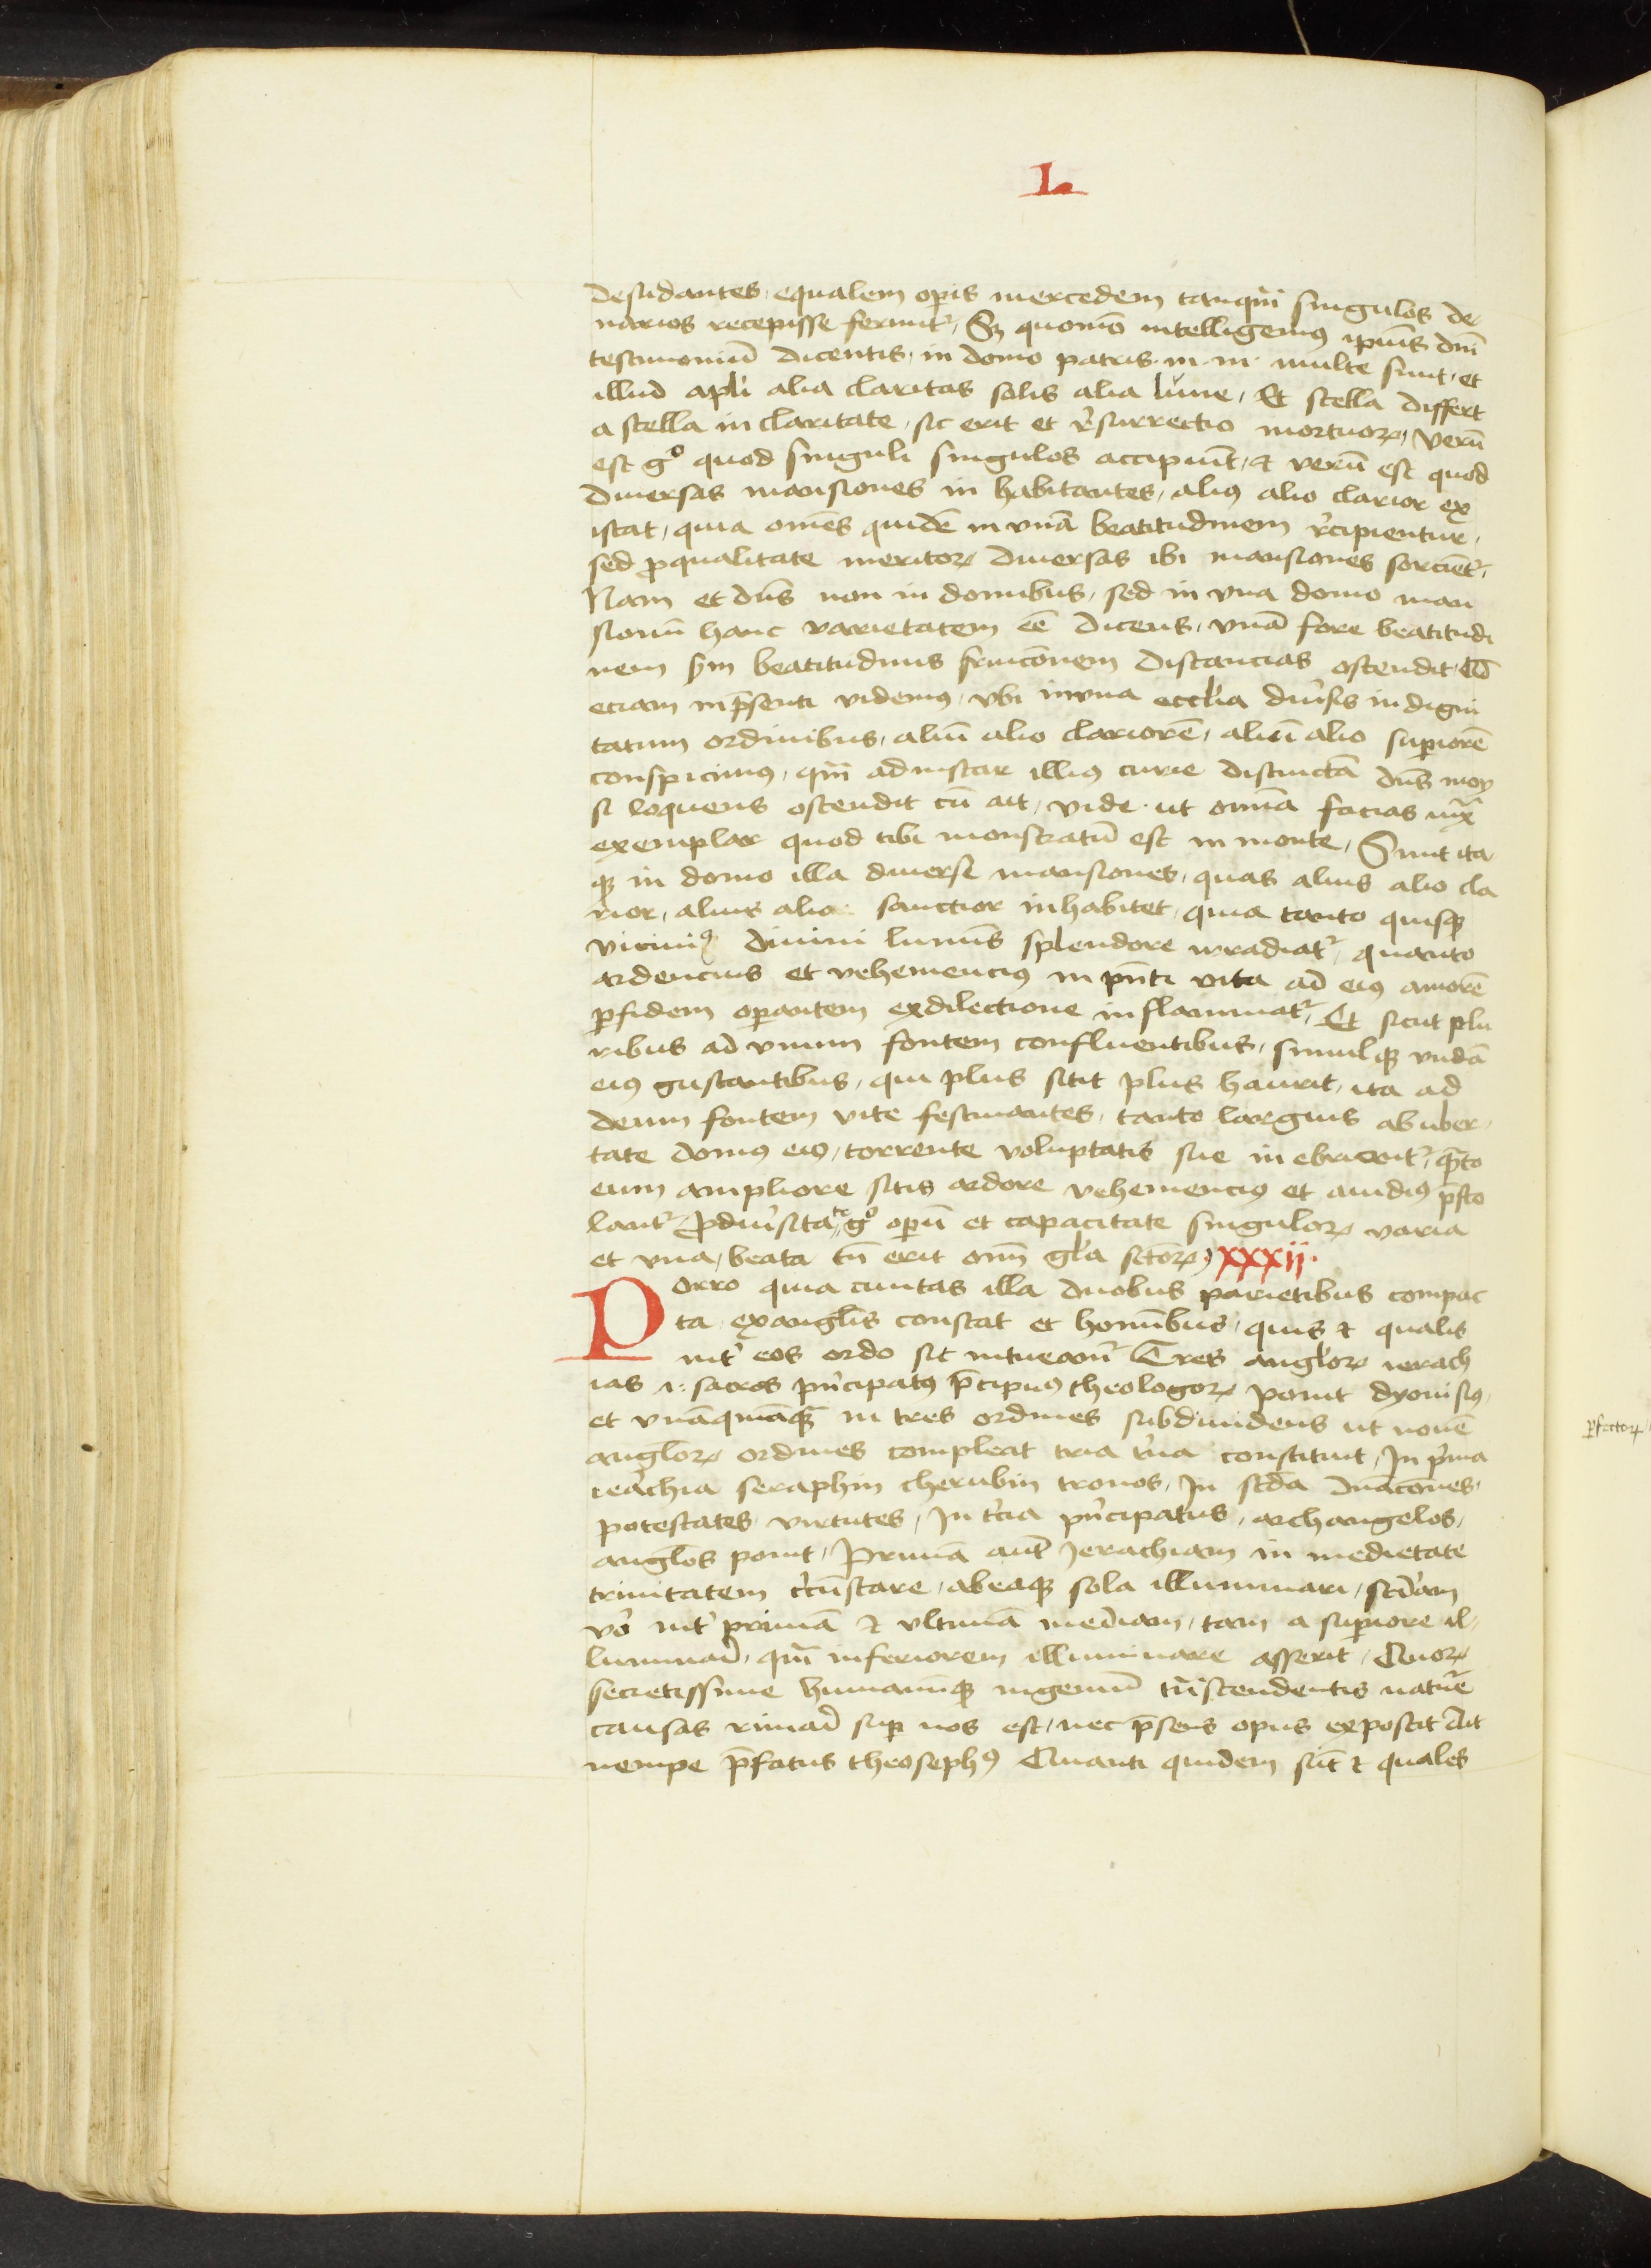 L
desudantes equalem opis mercedem tanqͫ singulos de
narios recepisse ferunt᷑, Sꝫ quomō intelligemꝰ ipius dnī
testimoniū dicentis, in domo patris .m. m. multe sunt, et
illud apl̓i alia claritas solis alia lune, Et stella differt
a stella in claritate, sic erit et r̓surrectio mortuoꝝ, verū
est gͦ quod singuli singulos accipiūt, ⁊ verū est quod
diuersas mansiones in habitantes, aliꝰ alio clarior ex
istat, quia om̄es quidē in vnā beatitudinem r̓cipientur,
sed ꝓqualitate meritoꝝ diuersas ibi mansiones sorciēt᷑,
Nam et dn̄s non in domibus, sed in vna domo man
sionū hanc varietatem eē dicens, vnā fore beatitudi
nem sꝫm beatitudinis fruicōnem distancias ostendit
eciam inp̄senti videmꝰ, vbi invna eccl̓ia diu̓sis in digni
tatum ordinibus, aliū alio clariorē, aliū alio supiorē
conspicimꝰ, qm̄ adinstar illiꝰ curie distinctā dn̄s moy
si loquens ostendit cū ait, vide ut omīa facias iux̄
exemplar quod tibi monstratū est in monte, Sunt ita
qꝫ in domo illa diuerse mansiones, quas alius alio cla
rior, alius alio sanctior inhabitet, quia tanto quisqꝫ
viciniꝰ diuini lumīs splendore irradiat᷑, quanto
ardencius et vehemenciꝰ in pn̄ti vita ad eiꝰ amorē
ꝑfidem opantem exdilectione inflammat᷑, Et sicut plu
ribus ad vnum fontem confluentibus, simulqꝫ vndā
eiꝰ gustantibus, qui plus sitit plus haurit, ita ad
deum fontem vite festinantes, tanto largius ab uber
tate domꝰ eiꝰ, torrente voluptatis sue in ebriant᷑, qn̄to
eum ampliore sitis ardore vehemenciꝰ et auidiꝰ p̄sto
lant᷑, ꝓdiu̓sitate gͦ opū et capacitate singuloꝝ varia
et vna, beata tn̄ erit om̄ gl̓a sctōꝝ, xxxii.
Porro quia ciuitas illa duobus parietibus compac
ta, exangl̓is constat et homībus, quis ⁊ qualis
int̓ eos ordo sit intueam̓ Tres angl̓oꝝ ierach
ias .i. sacros pn̓cipatꝰ p̄cipuꝰ theologoꝝ ponit dyonisiꝰ,
et vnāquāqꝫ in tres ordines subdiuidens ut nouē
angloꝝ ordines compleat tria t̓na constituit, In p̓ma
ierachia seraphin cherubin tronos, In scd̄a dn̄acōnes,
potestates virtutes, In t̓cia pn̓cipatus, archangelos,
anglos ponit, Primā aut̄ Jerachiam in medietate
trinitatem c̓cūstare, abeaqꝫ sola illuminari, scd̓am
vo̓ int̓ primā ⁊ vltimā mediam, tam a supiore il
luminari, qͫ inferiorem illuminare asserit, Quoꝝ
secretissime humanūqꝫ ingeniū tn̄scendentis natu̓e
causas rimari sup nos est, nec p̄sens opus exposcit Ait
nempe p̄fatus theosephꝰ Quanti quidem sūt ⁊ quales
ꝑfectoꝝ